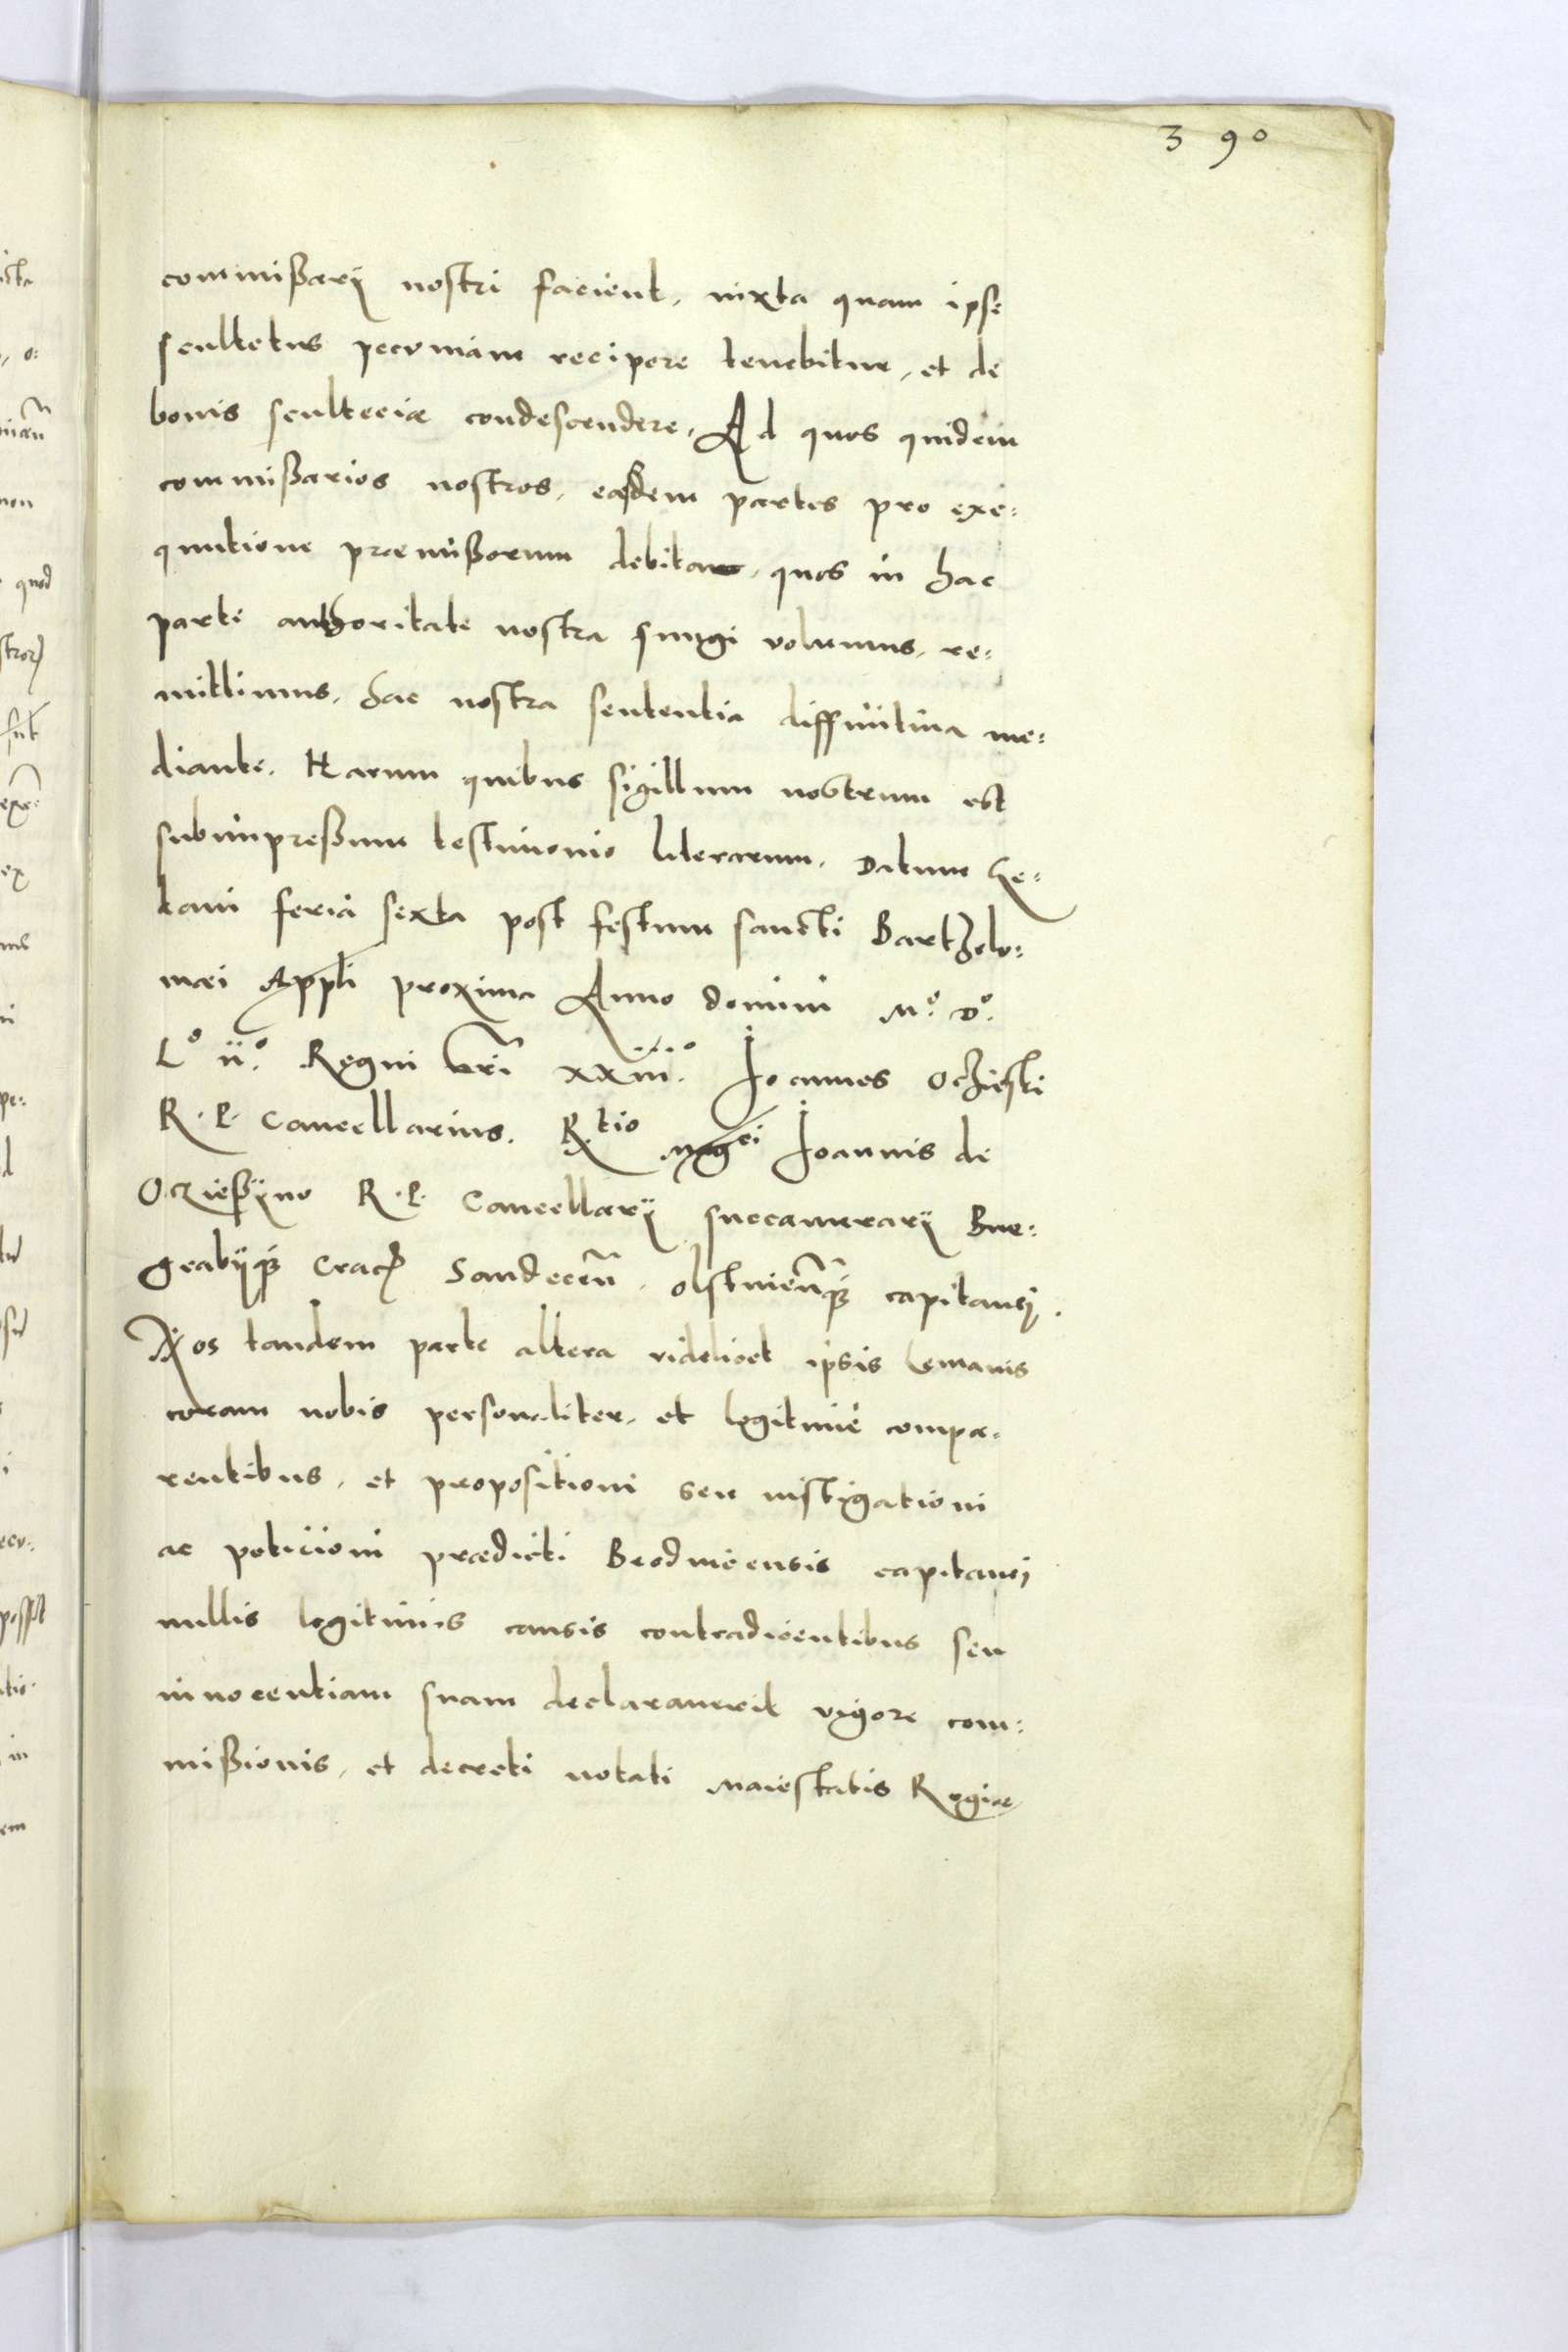 390
commißarij nostri facient, iuxta quam ipse
scultetus pecuniam recipere tenebitur, et de
bonis scultecie condescendere, Ad quos quidem
commißarios nostros, easdem partes pro exe:
quutione præmißorum debita, quos in hac
parte authoritate nostra fungi volumus, re:
mittimus, hac nostra sententia diffinitiua me:
diante. Harum quibus sigillum nostrum est
subimpreßum testimonio literarum. Datum
feria sexta post festum sancti Bartholo:
mæi Appli proxima Anno domini Mº. Dº.
Lº iiº. Regni vri xxiiiº. Joannes Oczieski
R. P. Cancellarius. Rtio Mgci Joannis de
Oczießijno R. P. Cancellarij succamerarij Bur:
grabijqꝫ Crac Sandecen̄. olstinen̄qꝫ capitanej.
Nos tandem parte altera videlicet ipsis Lemanis
coram nobis personaliter, et legitime compa:
rentibus, et propositioni seu instigationi
ac peticioni prædicti Brodnicensis capitanej
nullis legitimis causis contradicentibus seu
innocentiam suam declarauerit vigore com:
mißionis, et decreti notati Maiestatis Regiæ